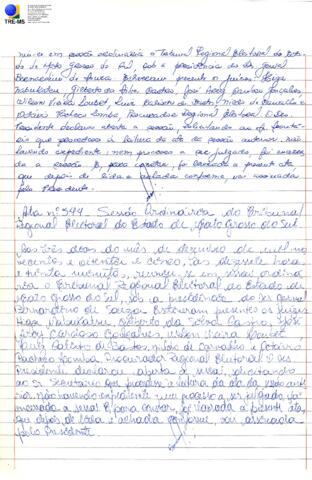 TRE-MS
niu-se em sessão ordinária o Tribunal Regional Eleitoral do Esta-
do de Mato Grosso do Sul, sob a presidência do Des. Gerval
Bernardino de Souza. Estiveram presentes os Juízes Higa
Nabukatsu, Gilberto da Silva Castro, José Cardoso Gonçalves,
Wilson Vieira Loubet, Luiz
Pacheco Lomba, Procurador Regional Eleitoral. O Des.
Presidente declarou aberta a sessão, solicitando ao Sr. Secretá-
rio que procedesse à leitura da ata da sessão anterior. Não
havendo expediente, nem processo a ser julgado, foi encerra-
da a sessão. E, para constar, foi lavrada a presente ata
que depois de lida e achada conforme, vai assinada
pelo Presidente.
Ata nº 544 - Sessão Ordinária do Tribunal
Regional Eleitoral do Estado de Mato Grosso do Sul.
Aos três dias do mês de dezembro de mil no-
vecentos e oitenta e cinco, às dezessete horas
e trinta minutos, reuniu-se em sessão ordiná-
ria o Tribunal Regional Eleitoral do Estado de
Mato Grosso do Sul, sob a presidência do Des. Gerval
Bernardino de Souza. Estiveram presentes os Juízes
Higa Nabukatsu, Gilberto da Silva Castro, José
Cardoso Gonçalves, Wilson Vieira Loubet,
de Carvalho e
Pacheco Lomba, Procurador Regional Eleitoral. O Des.
Presidente declarou aberta a sessão, solicitando
ao Sr. Secretário que procedesse a leitura da ata da sessão ante-
rior. Não havendo expediente nem processo a ser julgado, foi
encerrada a sessão. E, para constar, foi lavrada a presente ata,
que depois de lida e achada conforme, vai assinada
pelo Presidente.